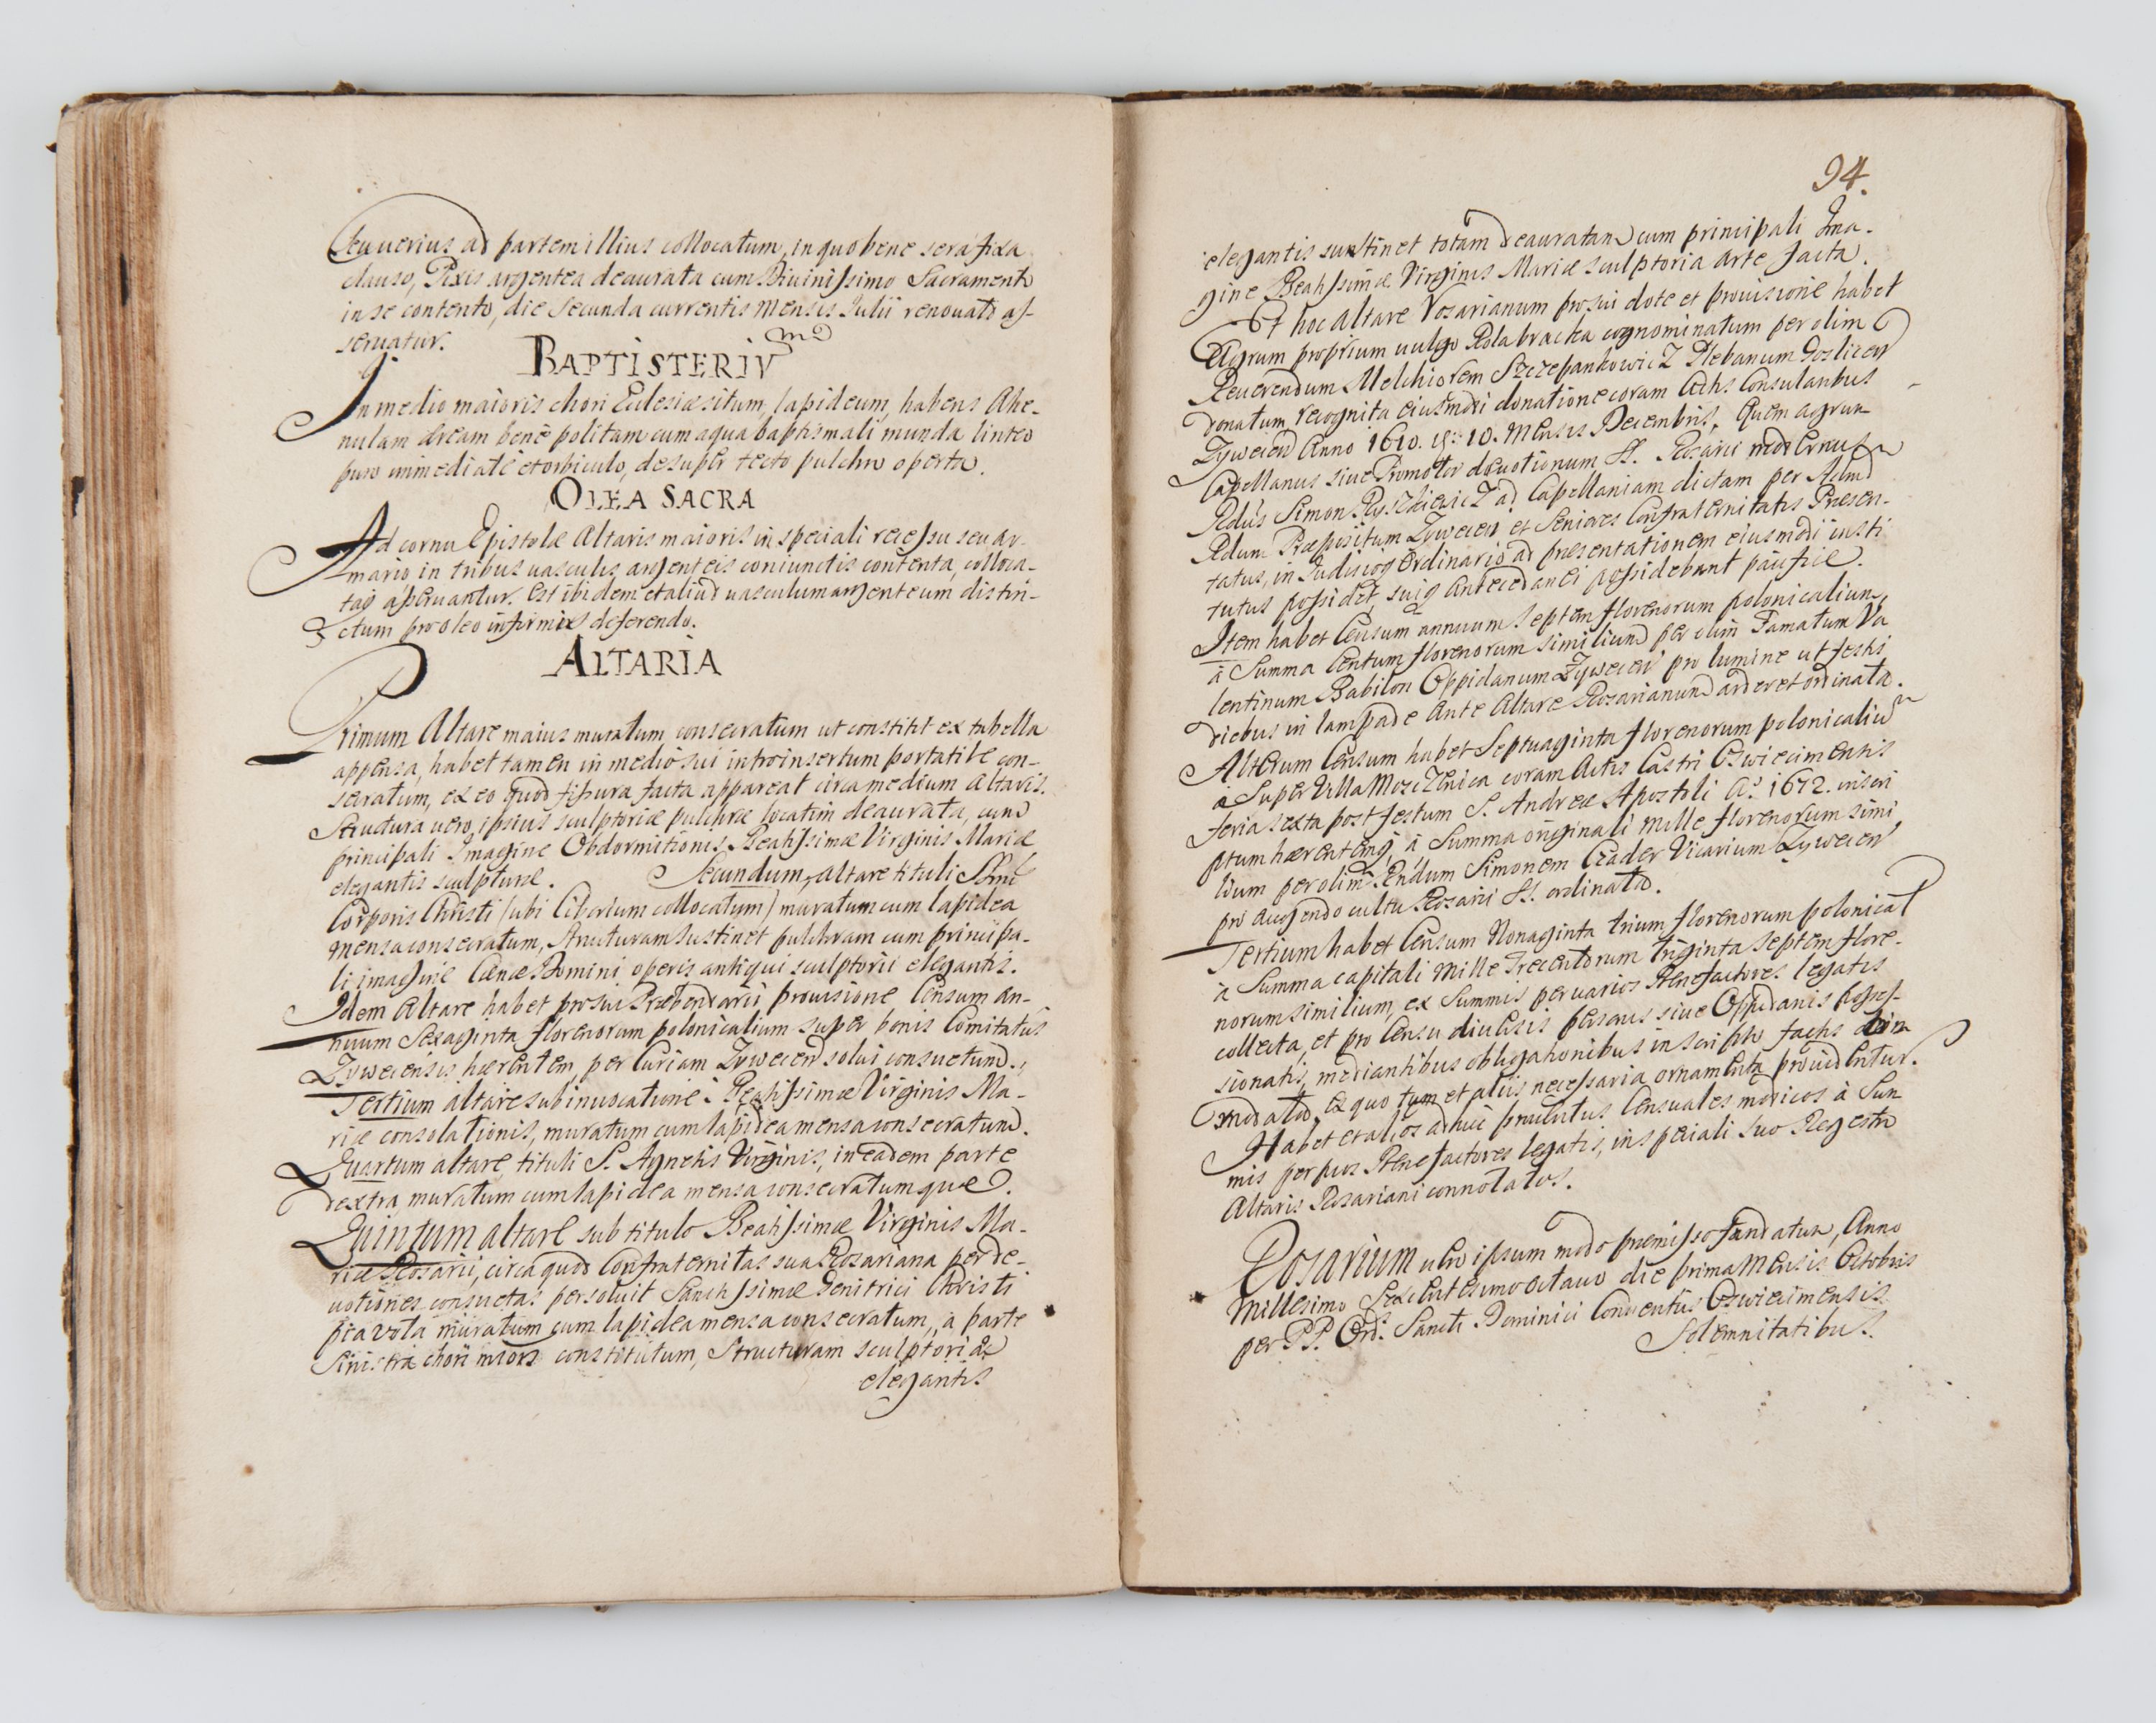 seu uerius ad partem illius collocatum, in quo bene sera fixa
clauso, Pixis argentea deaurata cum Diuinissimo Sacramento
in se contento, die secunda currentis Mensis Julii renouato as-
seruatur.
BAPTISTERIV̅
In medio maioris chori Ecclesiæ situm, lapideum, habens Ahe-
nulam æream benè politam cum aqua baptismali munda linteo
puro immediatè et orbiculo, desuper tecto pulchro operta.
OLEA SACRA
Ad cornu Epistolæ Altaris maioris in speciali recessu seu ar-
mario in tribus uasculis argenteis coniunctis contenta, colloca-
taq̃ asseruantur. est ibidem et aliud uasculum argenteum distin-
ctum pro oleo infirmis deferendo.
ALTARIA
Primum Altare maius muratum consecratum ut constitit ex tabella
appensa, habet tamen in medio sui introinsertum portatile con-
secratum, ex eo quod fissura facta appareat circa medium Altaris.
Structura uero, ipsius sculptoriæ pulchræ locatim deaurata, cum
principali Imagine Obdormitionis Beatissimæ Virginis Mariæ
elegantis sculpturæ. Secundum, altare tituli SSmi
Corporis Christi (ubi Ciborium collocatum) muratum cum lapidea
mensa consecratum, structuram sustinet pulchram cum principa-
li imagine Cænæ Domini operis antiqui sculptorii elegantis.
Idem Altare habet pro sui Præbendarii prouisione Censum an-
nuum Sexaginta florenorum polonicalium super bonis Comitatus
Zyweciensis hærentem, per Curiam Zywecen solui consuetum.
Tertium altare sub inuocatione Beatissimæ Virginis Ma-
riæ consolationis, muratum cum lapidea mensa consecratum.
Quartum altare tituli S. Agnetis Virginis, in eadem parte
dextra muratum cum lapidea mensa consecratumque.
Quintum altare sub titulo Beatissimæ Virginis Ma-
riæ Rosarii, circa quod Confraternitas sua Rosariana per de-
uotiones consuetas persoluit Sanctissimæ Genitrici Christi
pia vota muratum cum lapidea mensa consecratum, à parte
sinistra chori mioris constitutum, Structuram sculptoriæ
elegantis
94.
elegantis sustinet totam deauratam cum principali Ima-
gine Beatissimæ Virginis Mariæ sculptoria arte facta.
Et hoc Altare Rosarianum pro sui dote et prouisione habet
Agrum proprium uulgo Rola bracka cognominatum per olim
Reuerendum Melchiorem Szczepankowicz Plebanum
donatum, recognita eiusmodi donatione coram Actis Consularibus
Zywecen Anno 1610. 10. Mensis Decembris. Quem agrum
Capellanus siue Promotor deuotionum SS. Rosarii modernus
Rdus Simon ad Capellaniam dictam per Admd
Rdum Præpositum Zywecen et Seniores Confraternitatis Præsen-
tatus, in Judicioq̃ Ordinario ad præsentationem eiusmodi insti
tutus possidet, suiq̃ Antecedanei possidebant pacificè.
Item habet Censum annuum Septem florenorum polonicalium,
à Summa Centum florenorum similium per olim Famatum Va
lentinum Babilon Oppidanum Zywecen pro lumine ut festis
diebus in lampade ante Altare Rosarianum arderet ordinata.
Alterum Censum habet Septuaginta florenorum polonicaliu
à Super Villa Moszczenica coram Actis Castri Oswiecimensis
feria sexta post festum S. Andreæ Apostoli Ao. 1672. inscri
ptum hærentemq̃, à Summa originali mille florenorum simi
lium per olim Rndum Simonem Czader Vicarium Zywecen
pro augendo cultu Rosarii SS. ordinata.
Tertium habet Censum Nonaginta trium florenorum polonical
à Summa capitali Mille Trecentorum triginta septem flore-
norum similium, ex Summis per uarios Benefactores legatis
collecta, et pro Censu diuersis personis siue Oppidanis posses-
sionatis, mediantibus obligationibus in scripto factis
modata, ex quo tum et aliis necessaria ornamenta prouidentur.
Habet et alios adhuc prouentus Censuales modicos à Sum
mis per pios Benefactores legatis, in speciali suo Regestro
Altaris Rosariani connotatos.
Rosarium uero ipsum modo præmisso fundatum, Anno
Millesimo Sexcentesimo octauo die prima Mensis Octobris
per PP. Ord. Sancti Dominici Conuentus Oswiecimensis
Solemnitatibus.